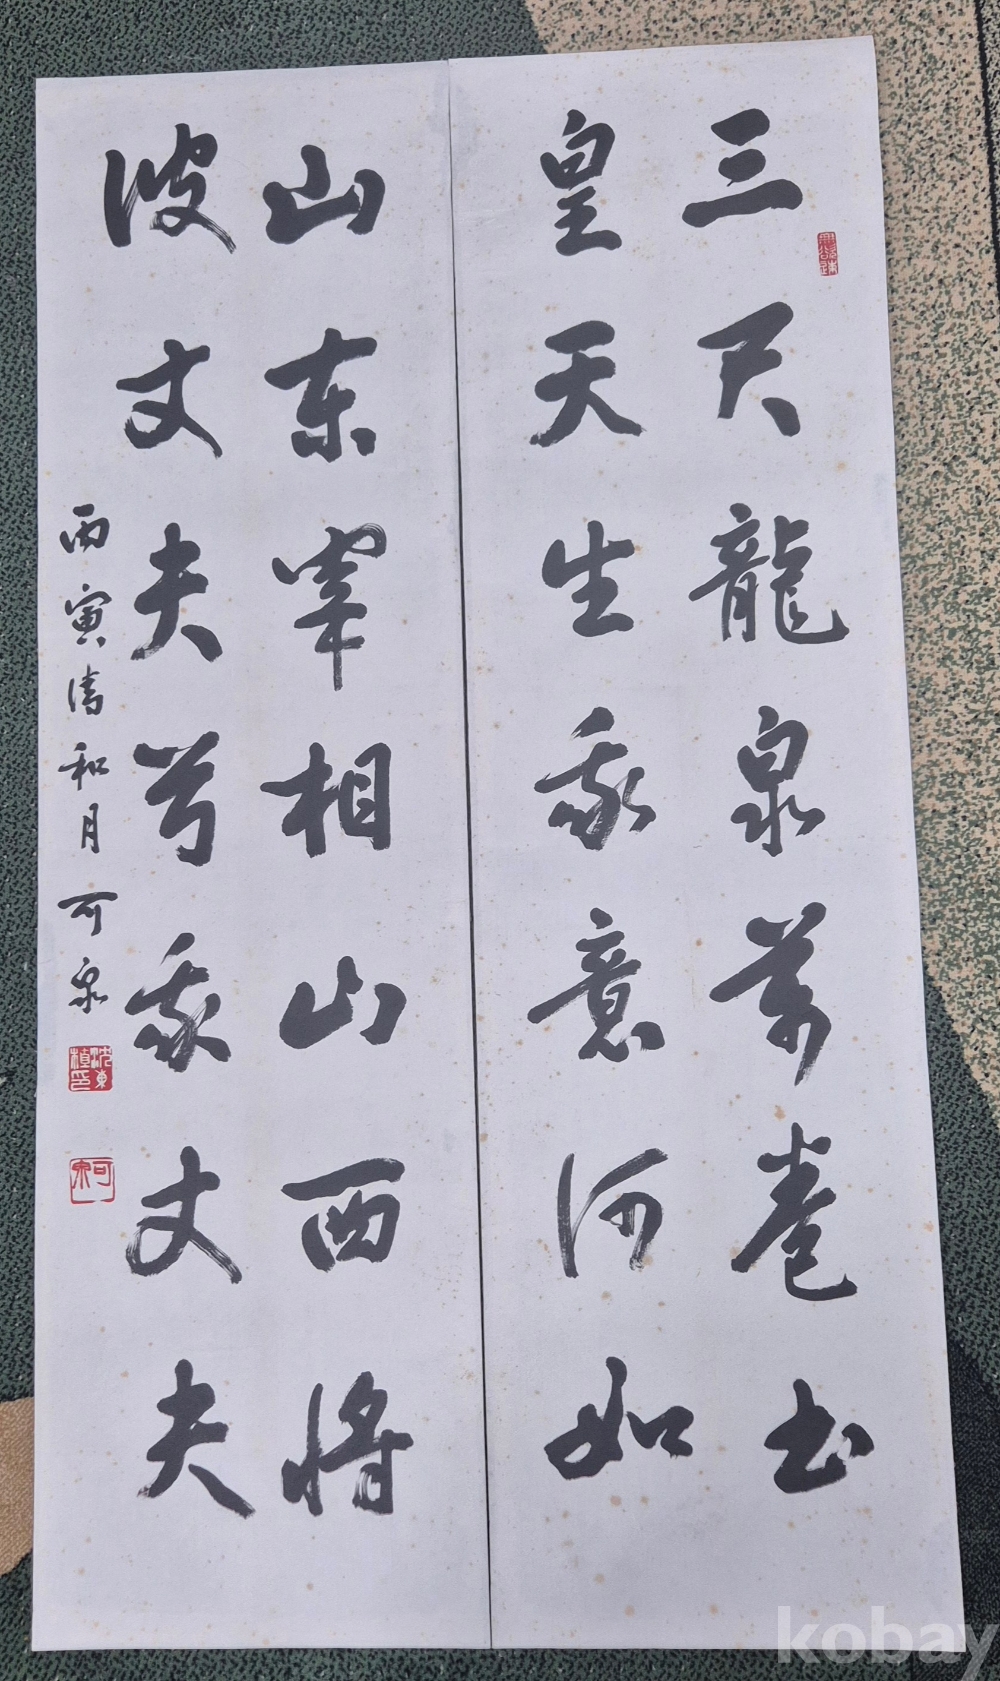 三尺龍泉萬卷書
皇天生我意何如
山東宰相山西將
彼丈夫兮我丈夫
丙寅清和月 可泉
沈東植印
可泉
kobay